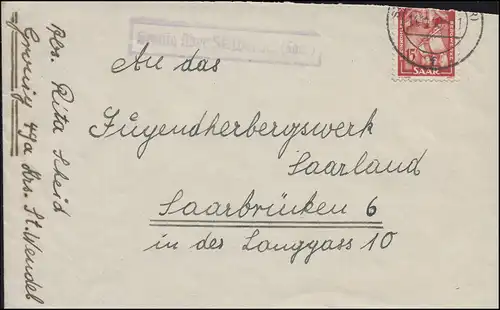 An das
Jugendherbergswerk
Saarland
Saarbrücken 6
in der Langgass 10
Abs. Rita Scheid
Gronig 49a Krs. St. Wendel
Gronig über St. Wendel (Saar)
15
SAAR